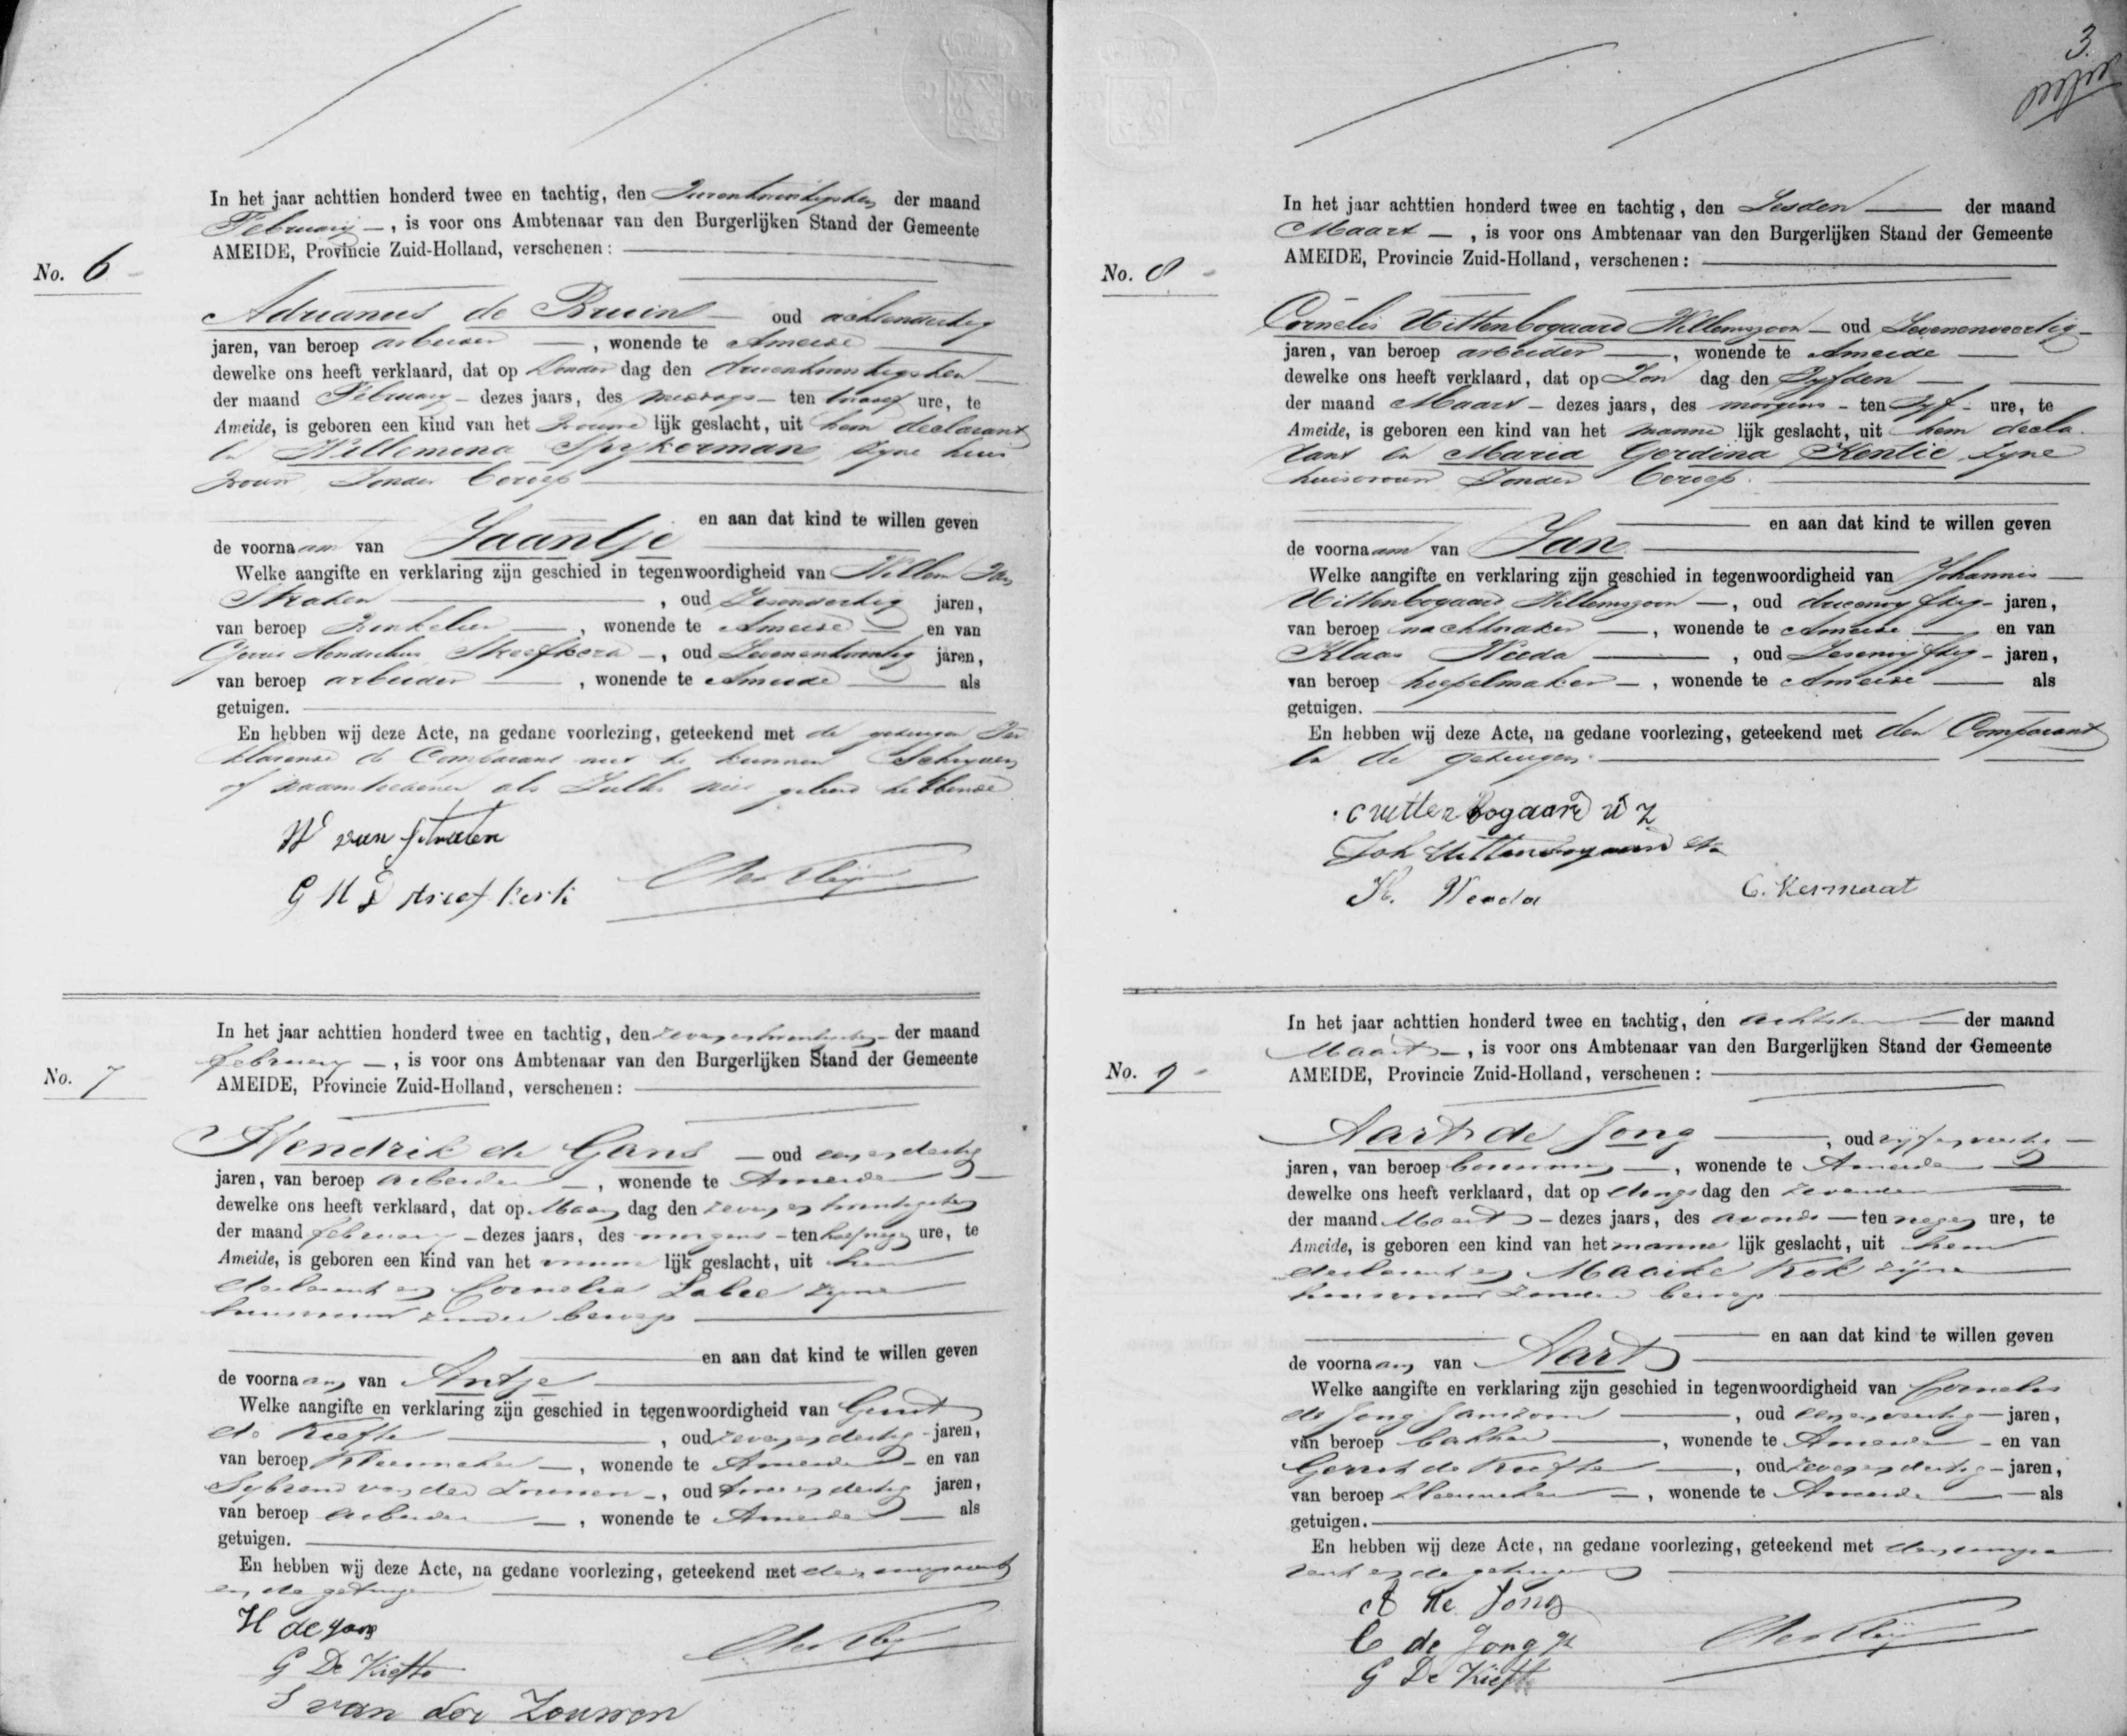 No. 6
In het jaar achttien honderd twee en tachtig, den der maand
February, is voor ons Ambtenaar van den Burgerlijken Stand der Gemeente
AMEIDE, Provincie Zuid-Holland, verschenen:
Adrianus de Bruin oud achtendertig
jaren, van beroep arbeider, wonende te Ameide
dewelke ons heeft verklaard, dat op Donder dag den drieentwintigsten
der maand February dezes jaars, des middags ten twaalf ure, te
Ameide, is geboren een kind van het vrouwe lijk geslacht, uit hem declarant
en Willemina Spijkerman zijne huis
vrouw, zonder beroep
en aan dat kind te willen geven
de voornaam van Jaantje
Welke aangifte en verklaring zijn geschied in tegenwoordigheid van Willem van
Straten, oud zesendertig jaren,
van beroep winkelier, wonende te Ameide en van
Gerrit Hendrikus Streefkerk, oud zevenentwintig jaren,
van beroep arbeider, wonende te Ameide als
getuigen.
En hebben wij deze Acte, na gedane voorlezing, geteekend met de getuigen Ver
klarende de Comparant niet te kunnen Schrijven
of naamteekenen als Zulks niet geleerd hebbende
W van Straten
G H Streefkerk
No. 7
In het jaar achttien honderd twee en tachtig, den zevenentwintigsten der maand
february, is voor ons Ambtenaar van den Burgerlijken Stand der Gemeente
AMEIDE, Provincie Zuid-Holland, verschenen:
Hendrik de Gans oud eenendertig
jaren, van beroep arbeider, wonende te Ameide
dewelke ons heeft verklaard, dat op Maan dag den zeven en twintigsten
der maand february dezes jaars, des morgens ten half negen ure, te
Ameide, is geboren een kind van het lijk geslacht, uit hem
declarant en Cornelia Labee zijne
huisvrouw zonder beroep
en aan dat kind te willen geven
de voornaam van Antje
Welke aangifte en verklaring zijn geschied in tegenwoordigheid van Gerrit
de Kiefte, oud zevenendertig jaren,
van beroep kleermaker, wonende te Ameide en van
Sybrand van der Zouwen, oud twee en dertig jaren,
van beroep arbeider, wonende te Ameide als
getuigen.
En hebben wij deze Acte, na gedane voorlezing, geteekend met den comparant
en de getuigen
H de gans
G De Kiefte
S van der Zouwen
3
No. 8
In het jaar achttien honderd twee en tachtig, den Zesden der maand
Maart, is voor ons Ambtenaar van den Burgerlijken Stand der Gemeente
AMEIDE, Provincie Zuid-Holland, verschenen:
Cornelis Uittenbogaard Willemszoon oud Zevenenveertig
jaren, van beroep arbeider, wonende te Ameide
dewelke ons heeft verklaard, dat op Zon dag den Vyfden
der maand Maart dezes jaars, des morgens ten Vyf ure, te
Ameide, is geboren een kind van het manne lijk geslacht, uit hem decla
rant en Maria Gerdina Kentie zyne
huisvrouw Zonder beroep.
en aan dat kind te willen geven
de voornaam van Jan
Welke aangifte en verklaring zijn geschied in tegenwoordigheid van Johannis
Uittenbogaard Willemszoon, oud drieenvyftig jaren,
van beroep nachtwaker, wonende te Ameide en van
Klaas Weeda, oud Zesenvyftig jaren,
van beroep hoepelmaker, wonende te Ameide als
getuigen.
En hebben wij deze Acte, na gedane voorlezing, geteekend met den Comparant
en de getuigen.
C uittenbogaard W Z
Joh Uittenbogaard
K. Weeda
C. Kermaat
No. 9
In het jaar achttien honderd twee en tachtig, den achtsten der maand
Maart, is voor ons Ambtenaar van den Burgerlijken Stand der Gemeente
AMEIDE, Provincie Zuid-Holland, verschenen:
Aart de Jong, oud vijfenveertig
jaren, van beroep bouwman, wonende te Ameide
dewelke ons heeft verklaard, dat op dings dag den zevenden
der maand Maart dezes jaars, des avonds ten negen ure, te
Ameide, is geboren een kind van het manne lijk geslacht, uit hem
declarant en Maaike Kok zijne
huisvrouw zonder beroep
en aan dat kind te willen geven
de voornaam van Aart
Welke aangifte en verklaring zijn geschied in tegenwoordigheid van Cornelis
de Jong Janszoon, oud eenenveertig jaren,
van beroep bakker, wonende te Ameide en van
Gerrit de Kiefte, oud zevenendertig jaren,
van beroep kleermaker, wonende te Ameide als
getuigen.
En hebben wij deze Acte, na gedane voorlezing, geteekend met den compa
rant en de getuigen
A de Jong
C de Jong Jz
G De Kieft